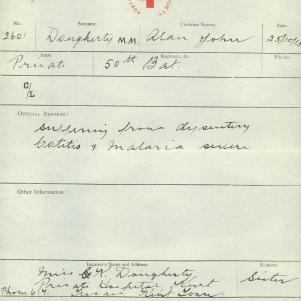 No. Surname. Christian Names. Date.
2601 Dougherty M.M. Alan John 25/10/1
Rank. Regiment, &c. File No.
Private 50th Bat.
C/L
OFFICIAL REPORTS:
suffering from dysentery
Colitis & Malaria severe
Other Information:
Inquirer's Name and Address. Relation.
Miss R. Dougherty Sister
Private Hospital, Kent
Phone 67. Kent Town.